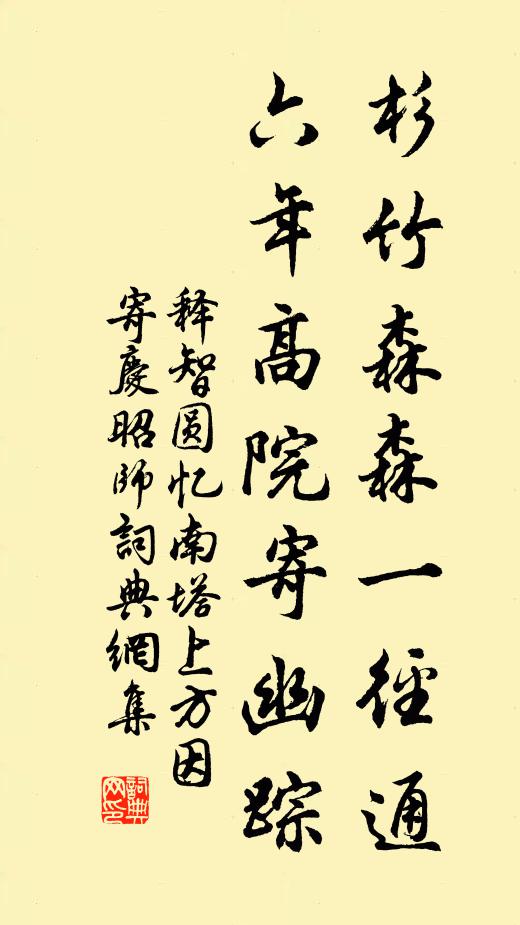 杉竹森森一径通
六年高院寄幽踪
释智圆忆南塔上方因
寄慶昭师詞典網集
詞典网印